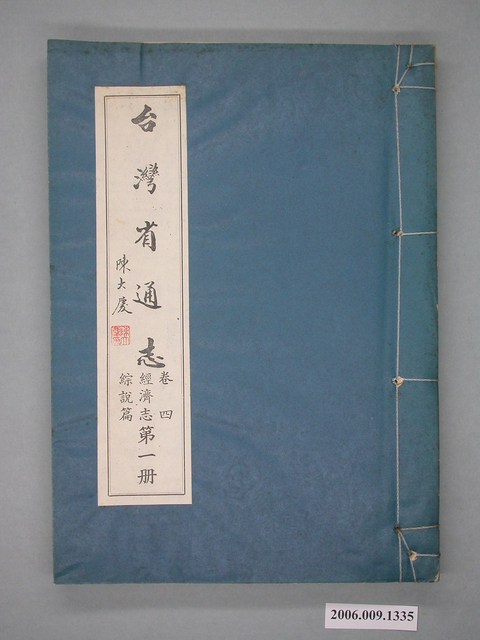 台灣省通志
卷四
經濟志第一册
綜說篇
陳大慶
2006.009.1335